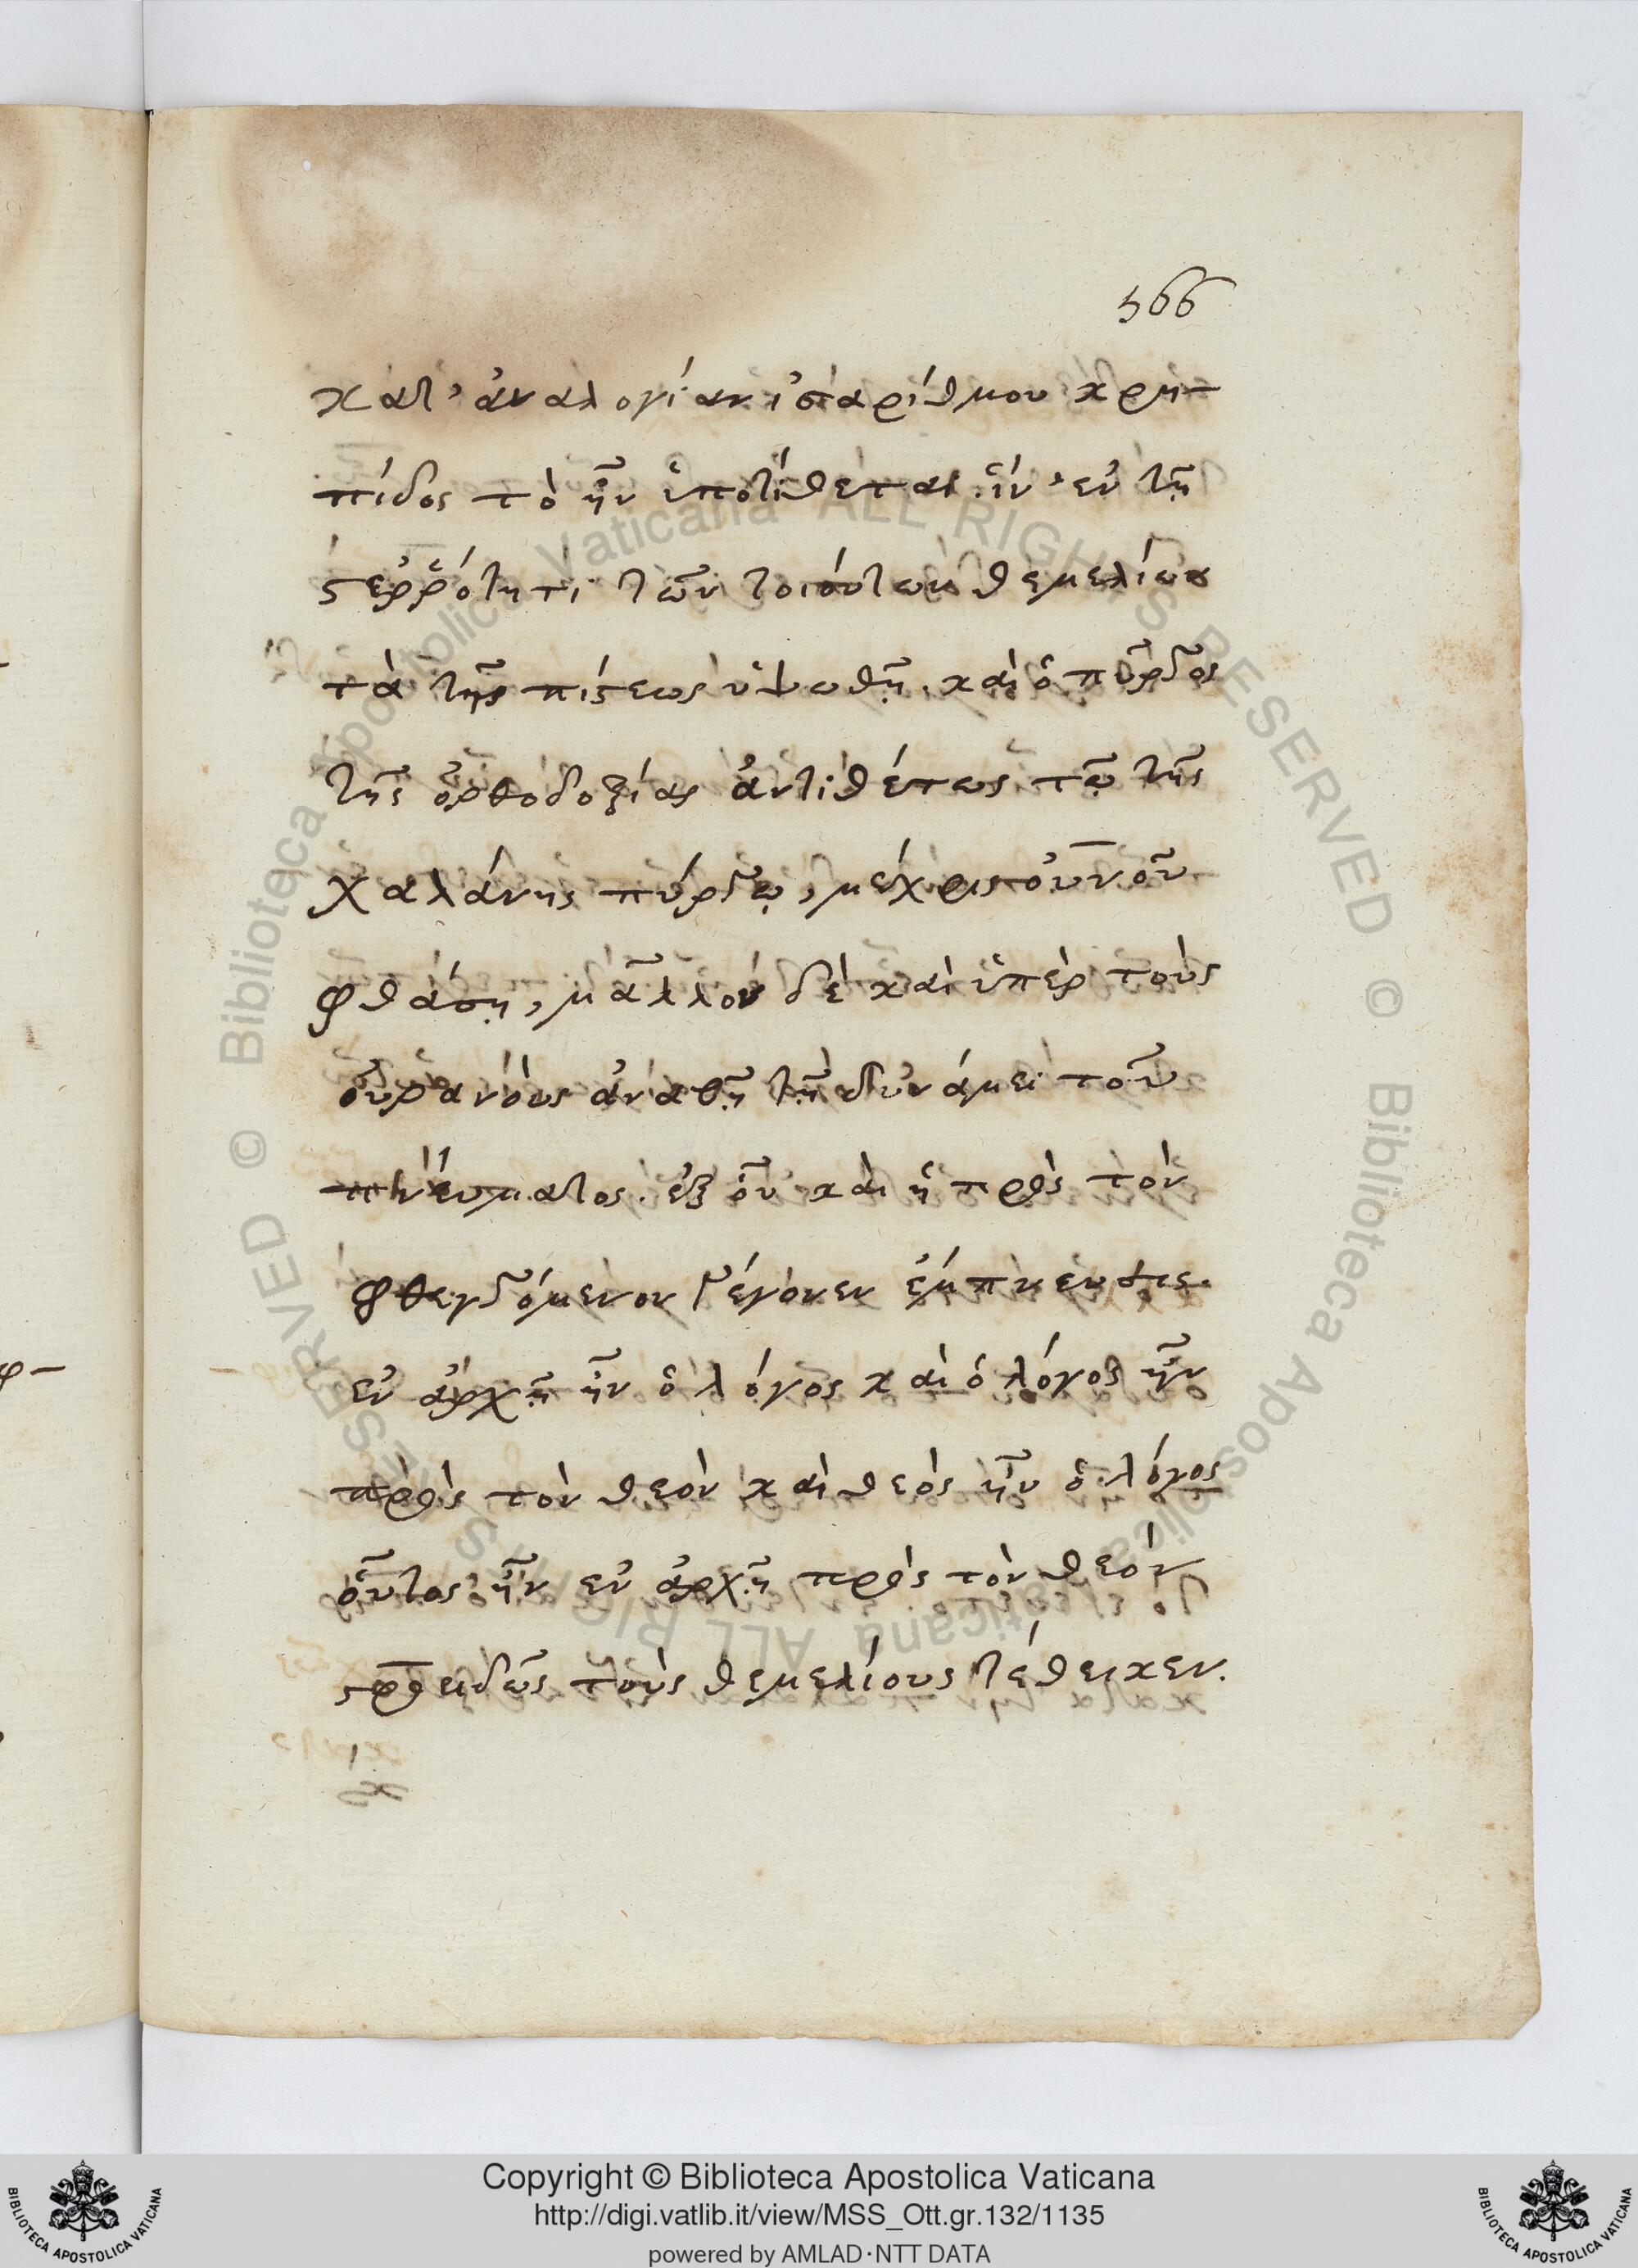 566
κατ' ἀναλογίαν ἰσαρίθμου κρη-
πίδος τὸ ἦν ὑποτίθεται. ἵν' ἐν τῇ
στεῤῥότητι τῶν τοιούτων θεμελίων
τὰ τῆς πίστεως ὑψωθῇ. καὶ ὁ πύργος
τῆς ὀρθοδοξίας ἀντιθέτως τῷ τῆς
χαλάνης πύργῳ, μέχρις οὐνοῦ
φθάσῃ, μᾶλλον δὲ καὶ ὑπὲρ τοὺς
οὐρανοὺς ἀναβῇ τῇ δυνάμει τοῦ
πνεύματος. ἐξ οὗ καὶ ἡ πρὸς τὸν
φθεγγόμενον γέγονεν ἔμπνευσις.
ἐν ἀρχῇ ἦν ὁ λόγος καὶ ὁ λόγος ἦν
πρὸς τὸν θεὸν καὶ θεὸς ἦν ὁ λόγος
οὗτος ἦν ἐν ἀρχῇ πρὸς τὸν θεόν
τοὺς θεμελίους τέθεικεν.
Copyright © Biblioteca Apostolica Vaticana
http://digi.vatlib.it/view/MSS_Ott.gr.132/1135
powered by AMLAD·NTT DATA
BIBLIOTECA APOSTOLICA VATICANA
BIBLIOTECA APOSTOLICA VATICANA
© Biblioteca Apostolica Vaticana ALL RIGHTS RESERVED
© Biblioteca Apostolica Vaticana ALL RIGHTS RESERVED